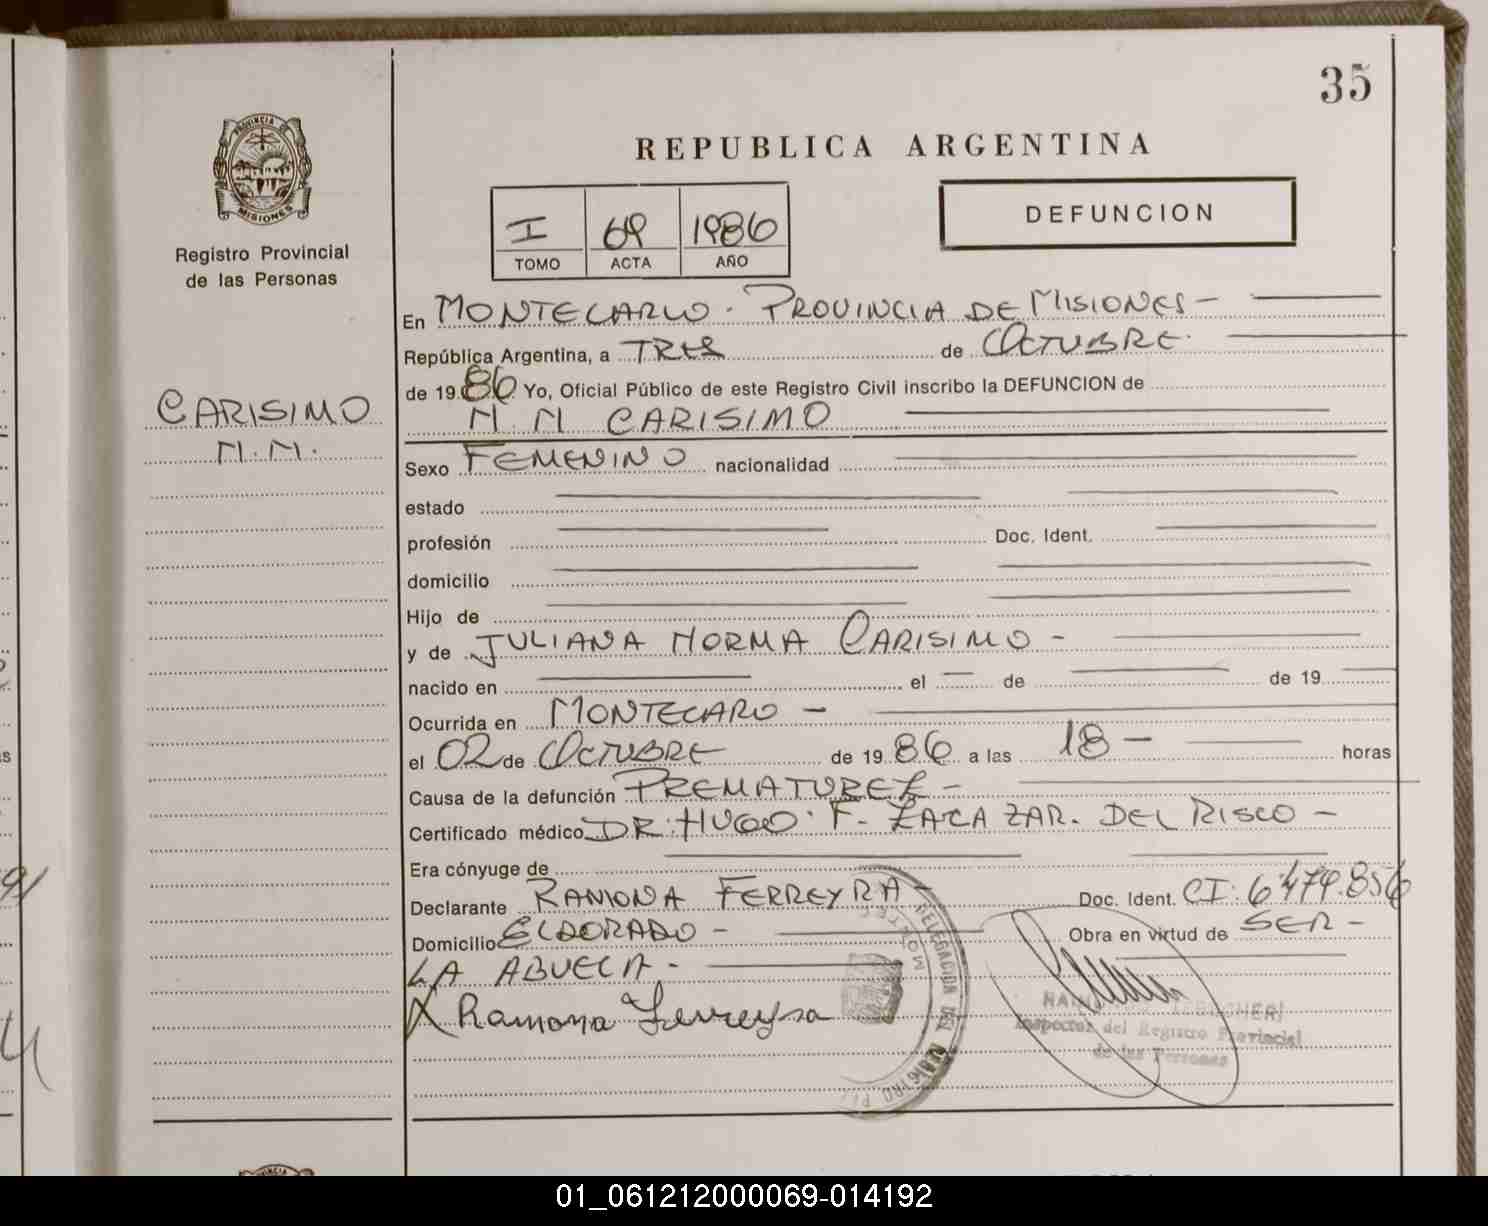 35
REPUBLICA ARGENTINA
PROVINCIA DE
MISIONES
Registro Provincial
de las Personas
I 69 1986
TOMO ACTA AÑO
DEFUNCION
CARISIMO
N.N.
En MONTECARLO - PROVINCIA DE MISIONES -
República Argentina, a TRES de OCTUBRE
de 1986 Yo, Oficial Público de este Registro Civil inscribo la DEFUNCION de
N. N CARISIMO
Sexo FEMENINO nacionalidad
estado
profesión Doc. Ident.
domicilio
Hijo de
y de JULIANA NORMA CARISIMO -
nacido en el de de 19
Ocurrida en MONTECARO -
el 02 de OCTUBRE de 1986 a las 18 - horas
Causa de la defunción PREMATUREZ -
Certificado médico DR. HUGO F. DEL RISCO -
Era cónyuge de
Declarante RAMONA FERREYRA - Doc. Ident. CI: 6.479.856
Domicilio ELDORADO - Obra en virtud de SER -
LA ABUELA -
X Ramona Ferreyra
DELEGACION DEL REGISTRO
Inspector del Registro Provincial
de las Personas
01_061212000069-014192